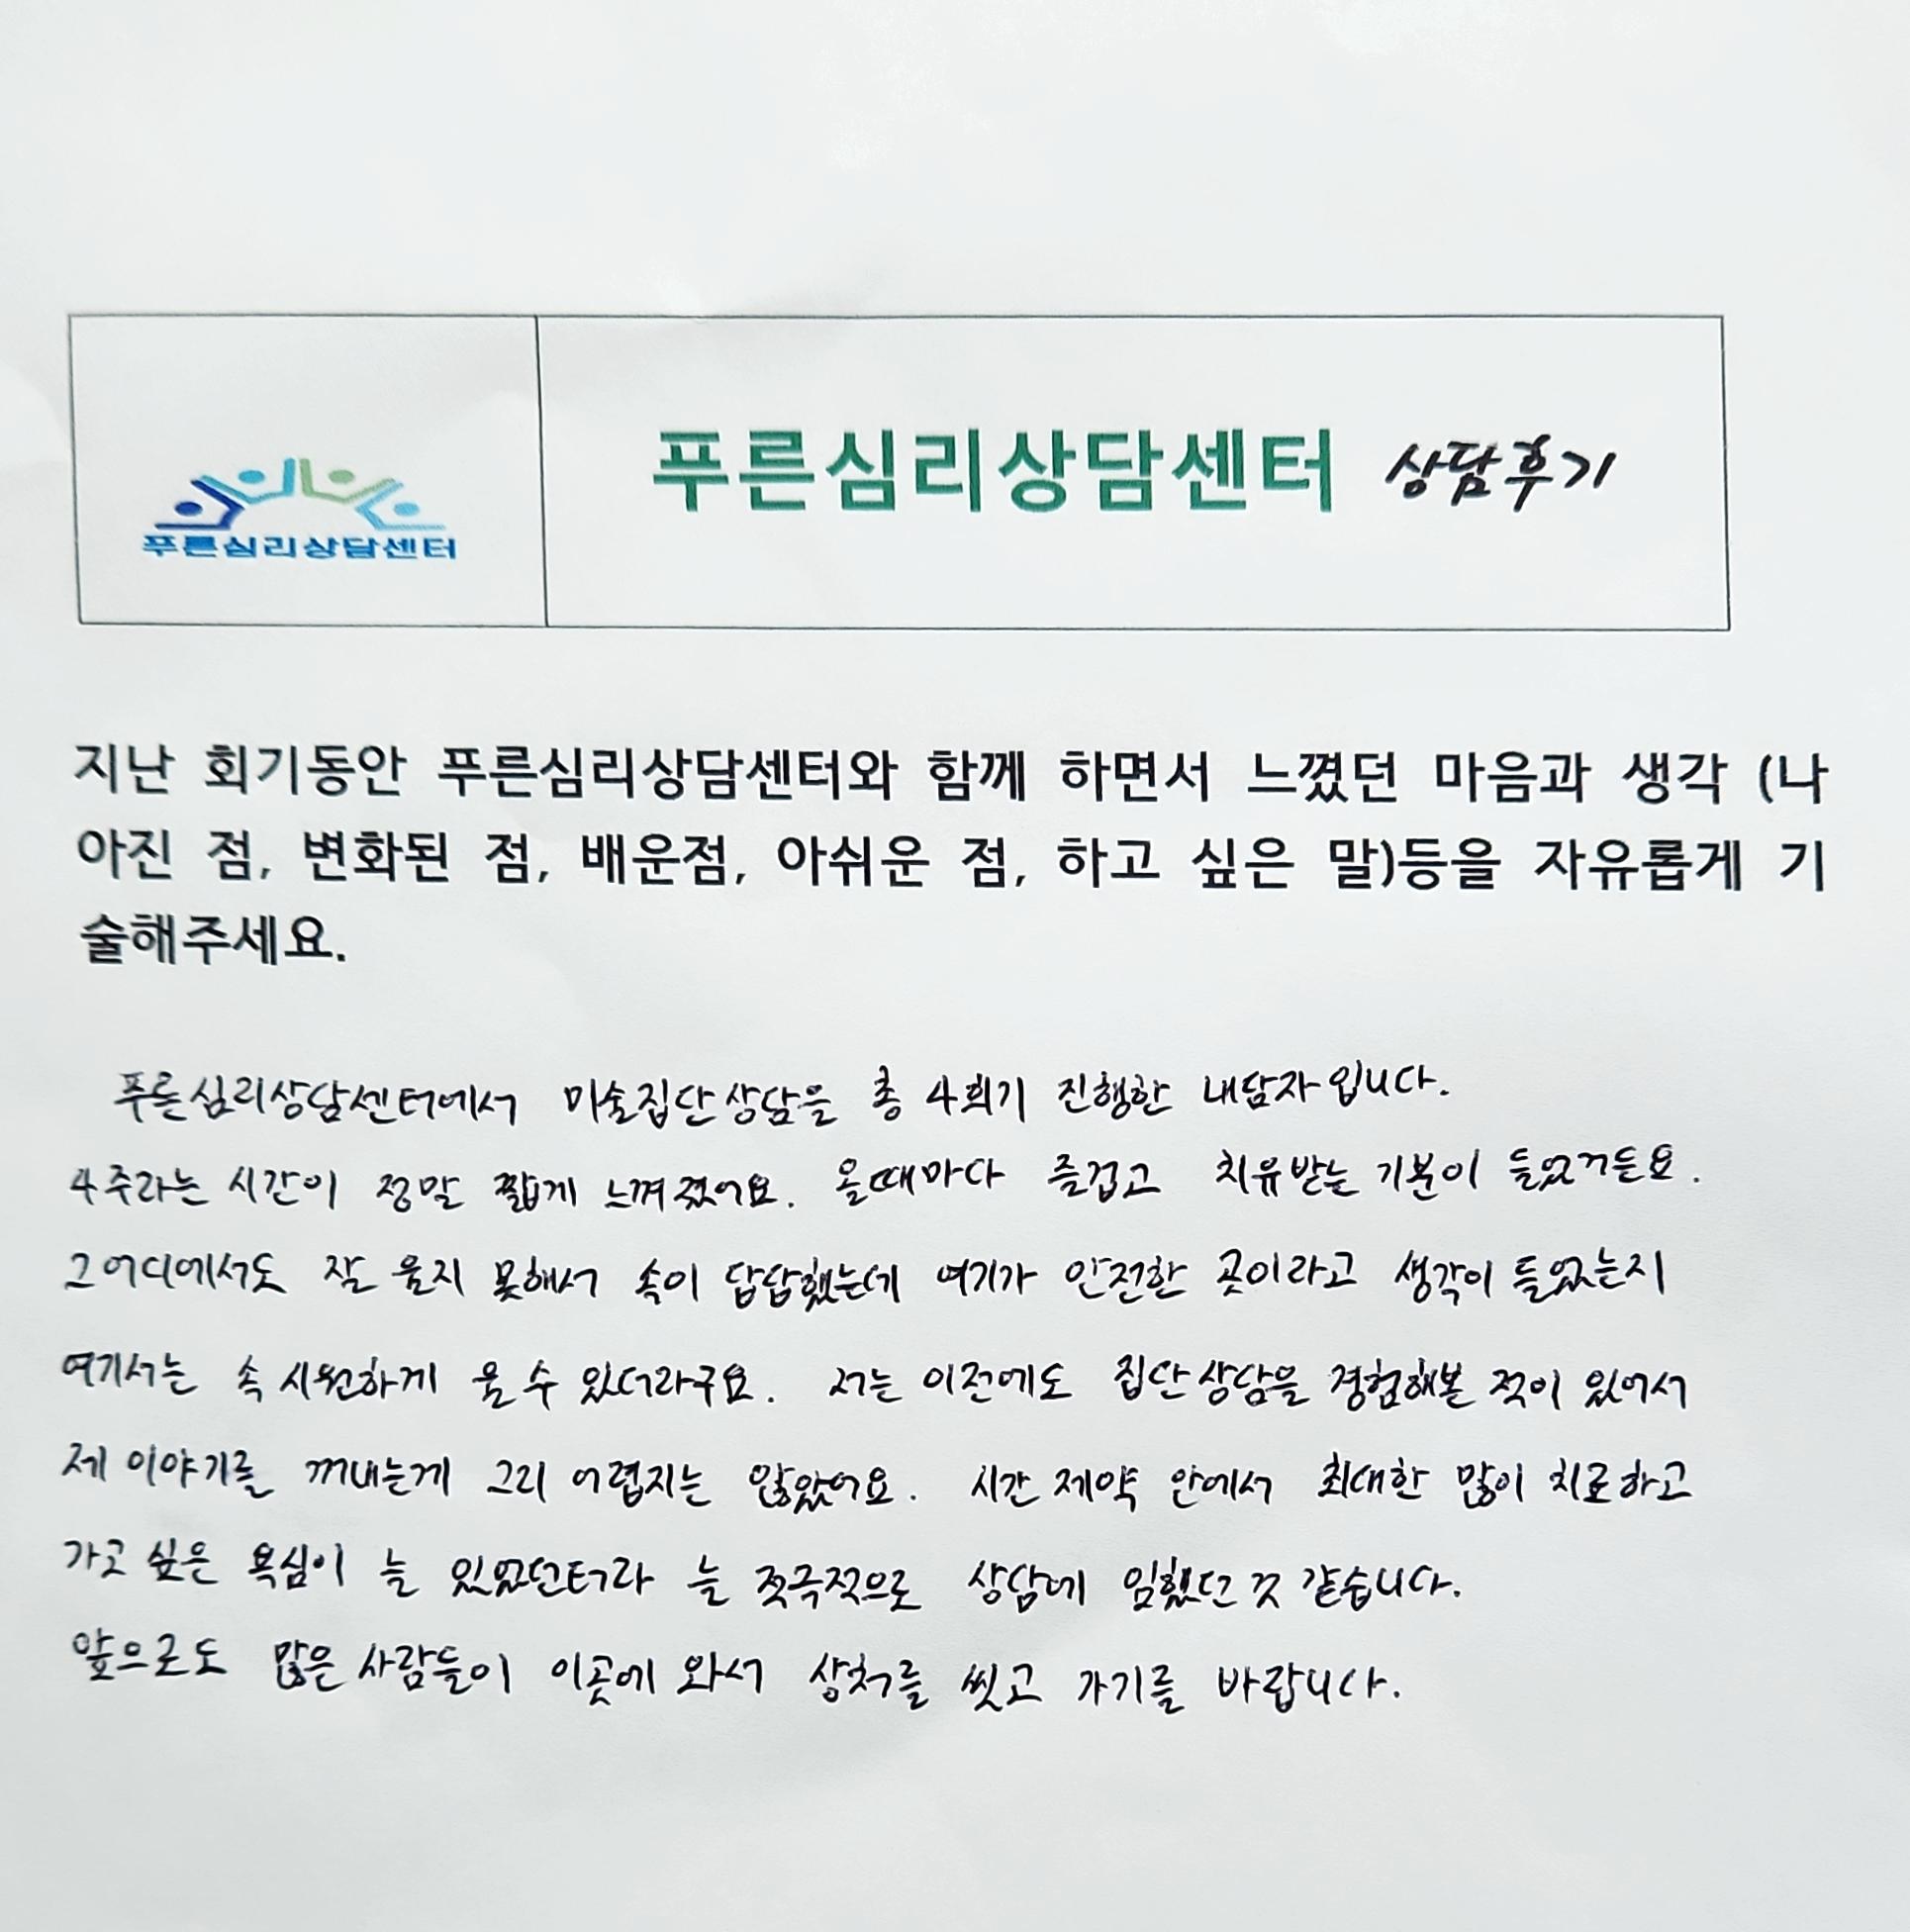 푸른심리상담센터
푸른심리상담센터 상담후기
지난 회기동안 푸른심리상담센터와 함께 하면서 느꼈던 마음과 생각 (나
아진 점, 변화된 점, 배운점, 아쉬운 점, 하고 싶은 말)등을 자유롭게 기
술해주세요.
푸른심리상담센터에서 미술집단상담을 총 4회기 진행한 내담자입니다.
4주라는 시간이 정말 짧게 느껴졌어요. 올때마다 즐겁고 치유받는 기분이 들었거든요.
그 어디에서도 잘 울지 못해서 속이 답답했는데 여기가 안전한 곳이라고 생각이 들었는지
여기서는 속 시원하게 울 수 있더라구요. 저는 이전에도 집단상담을 경험해본 적이 있어서
제 이야기를 꺼내는게 그리 어렵지는 않았어요. 시간 제약 안에서 최대한 많이 치료하고
가고 싶은 욕심이 늘 있었던터라 늘 적극적으로 상담에 임했던 것 같습니다.
앞으로도 많은 사람들이 이곳에 와서 상처를 씻고 가기를 바랍니다.